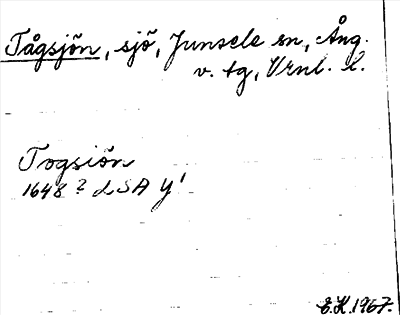 Tågsjön, sjö, Junsele sn, Ång.
v. tg, Vrnl. l.
Togsiön
1648? LSA Y¹
E.H. 1967.